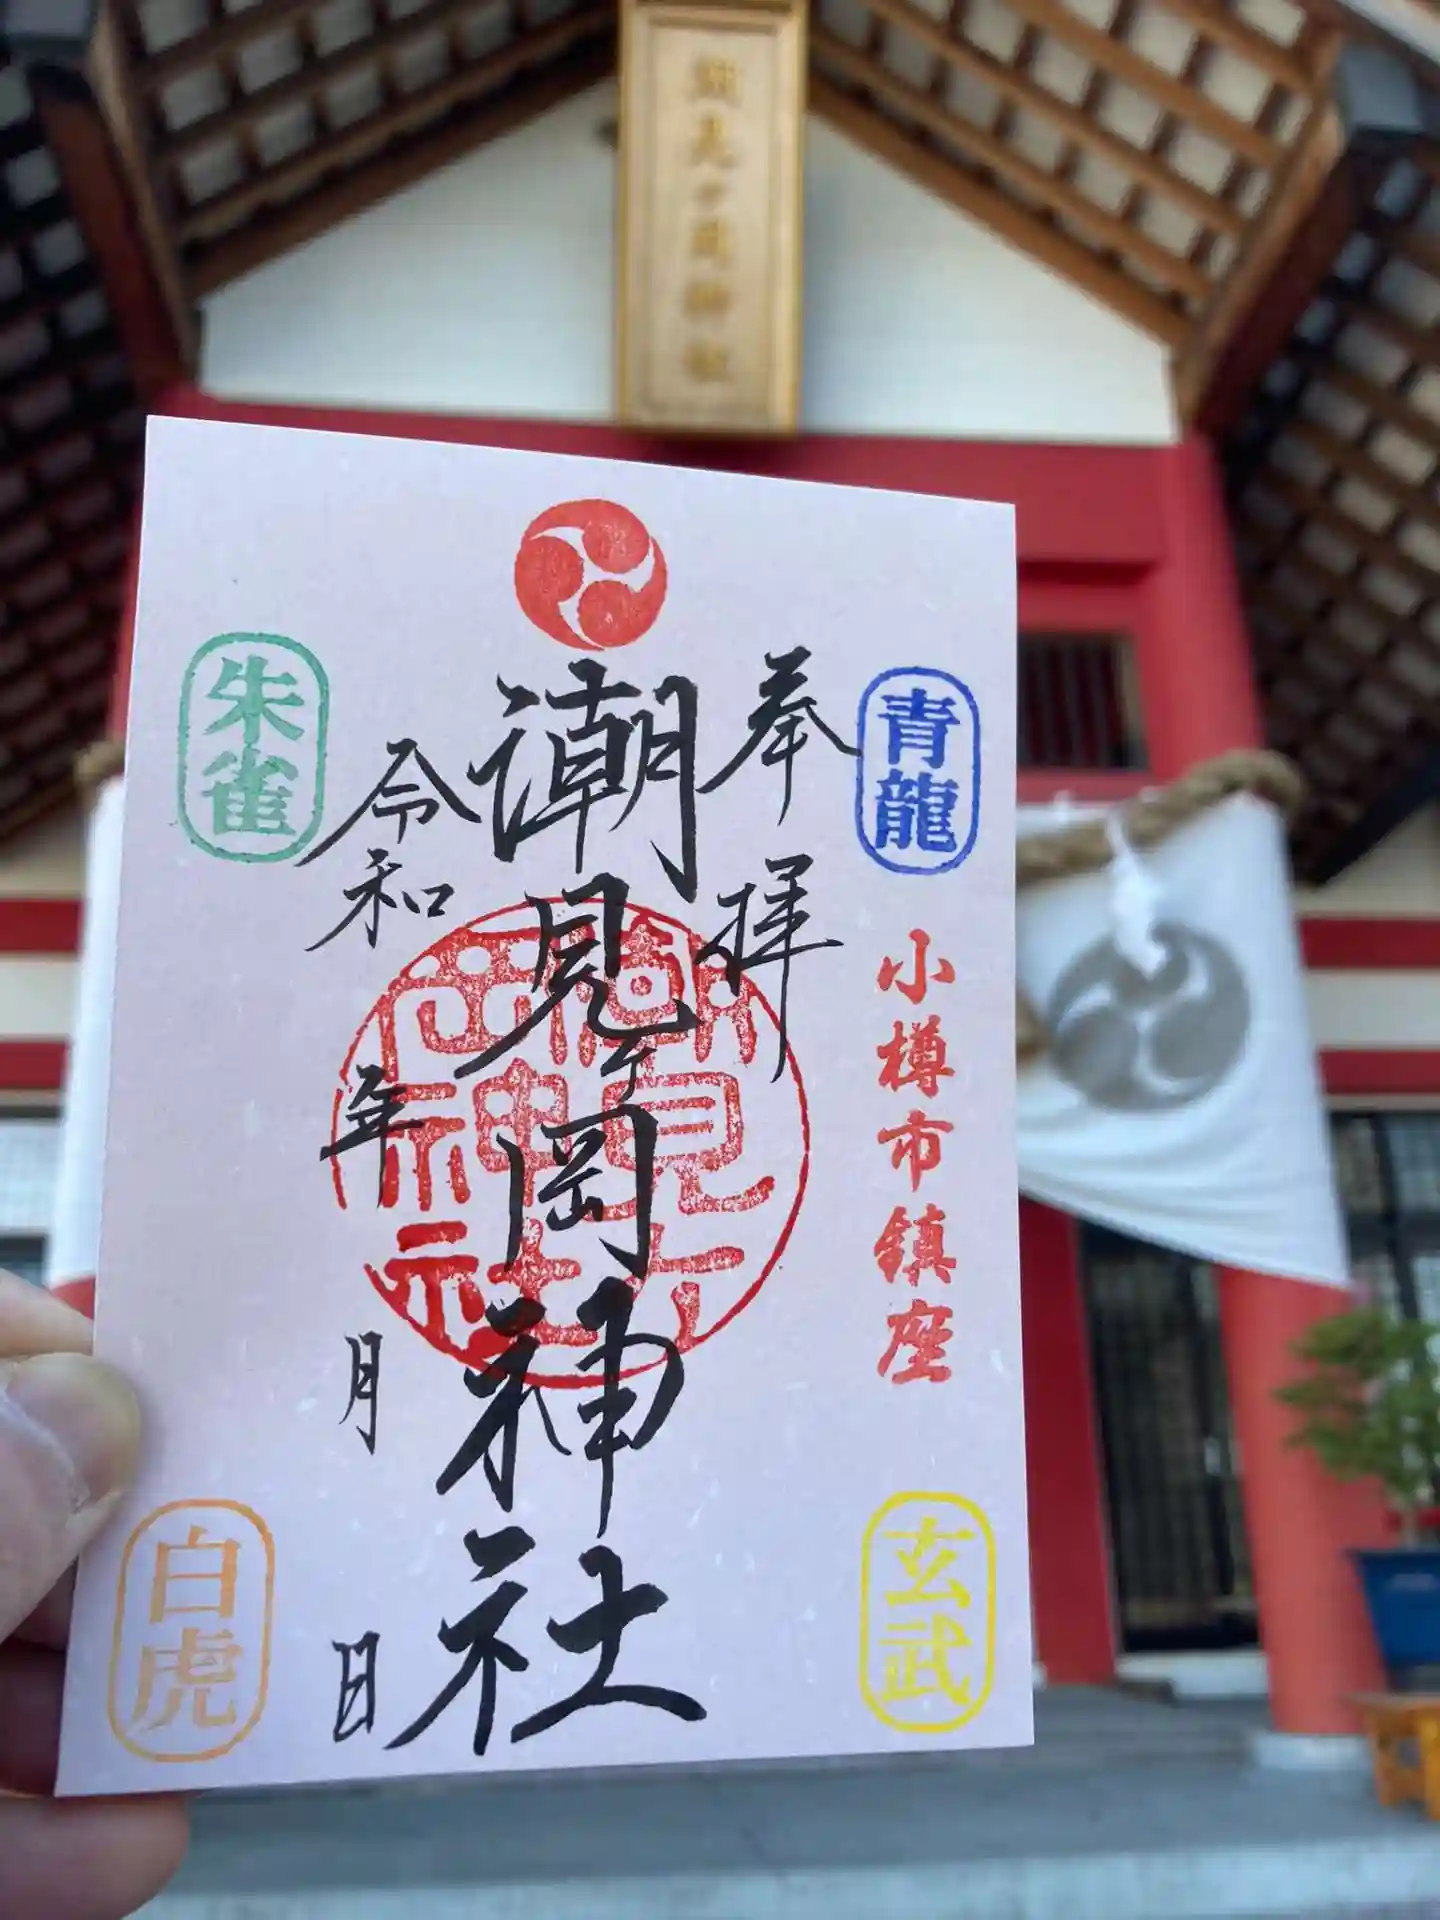 潮見ヶ岡神社
青龍
小樽市鎮座
玄武
奉拝
潮見ヶ岡神社
潮見ヶ岡神社
令和 年 月 日
朱雀
白虎